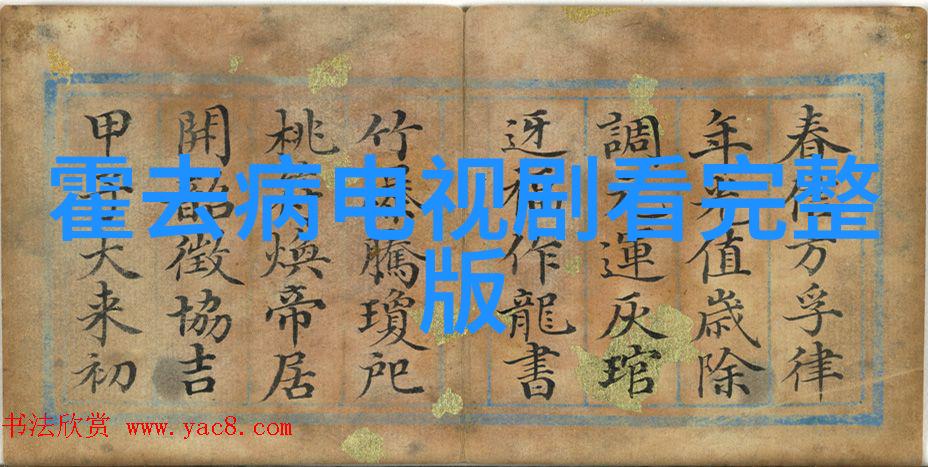 霍去病电视剧看完整
版
春信方孚律
年光值歲除
調運灰琯
迓福作龍書
竹騰瓊
桃煥帝居
開韶徵協吉
甲大来初
书法欣赏 www.yac8.com